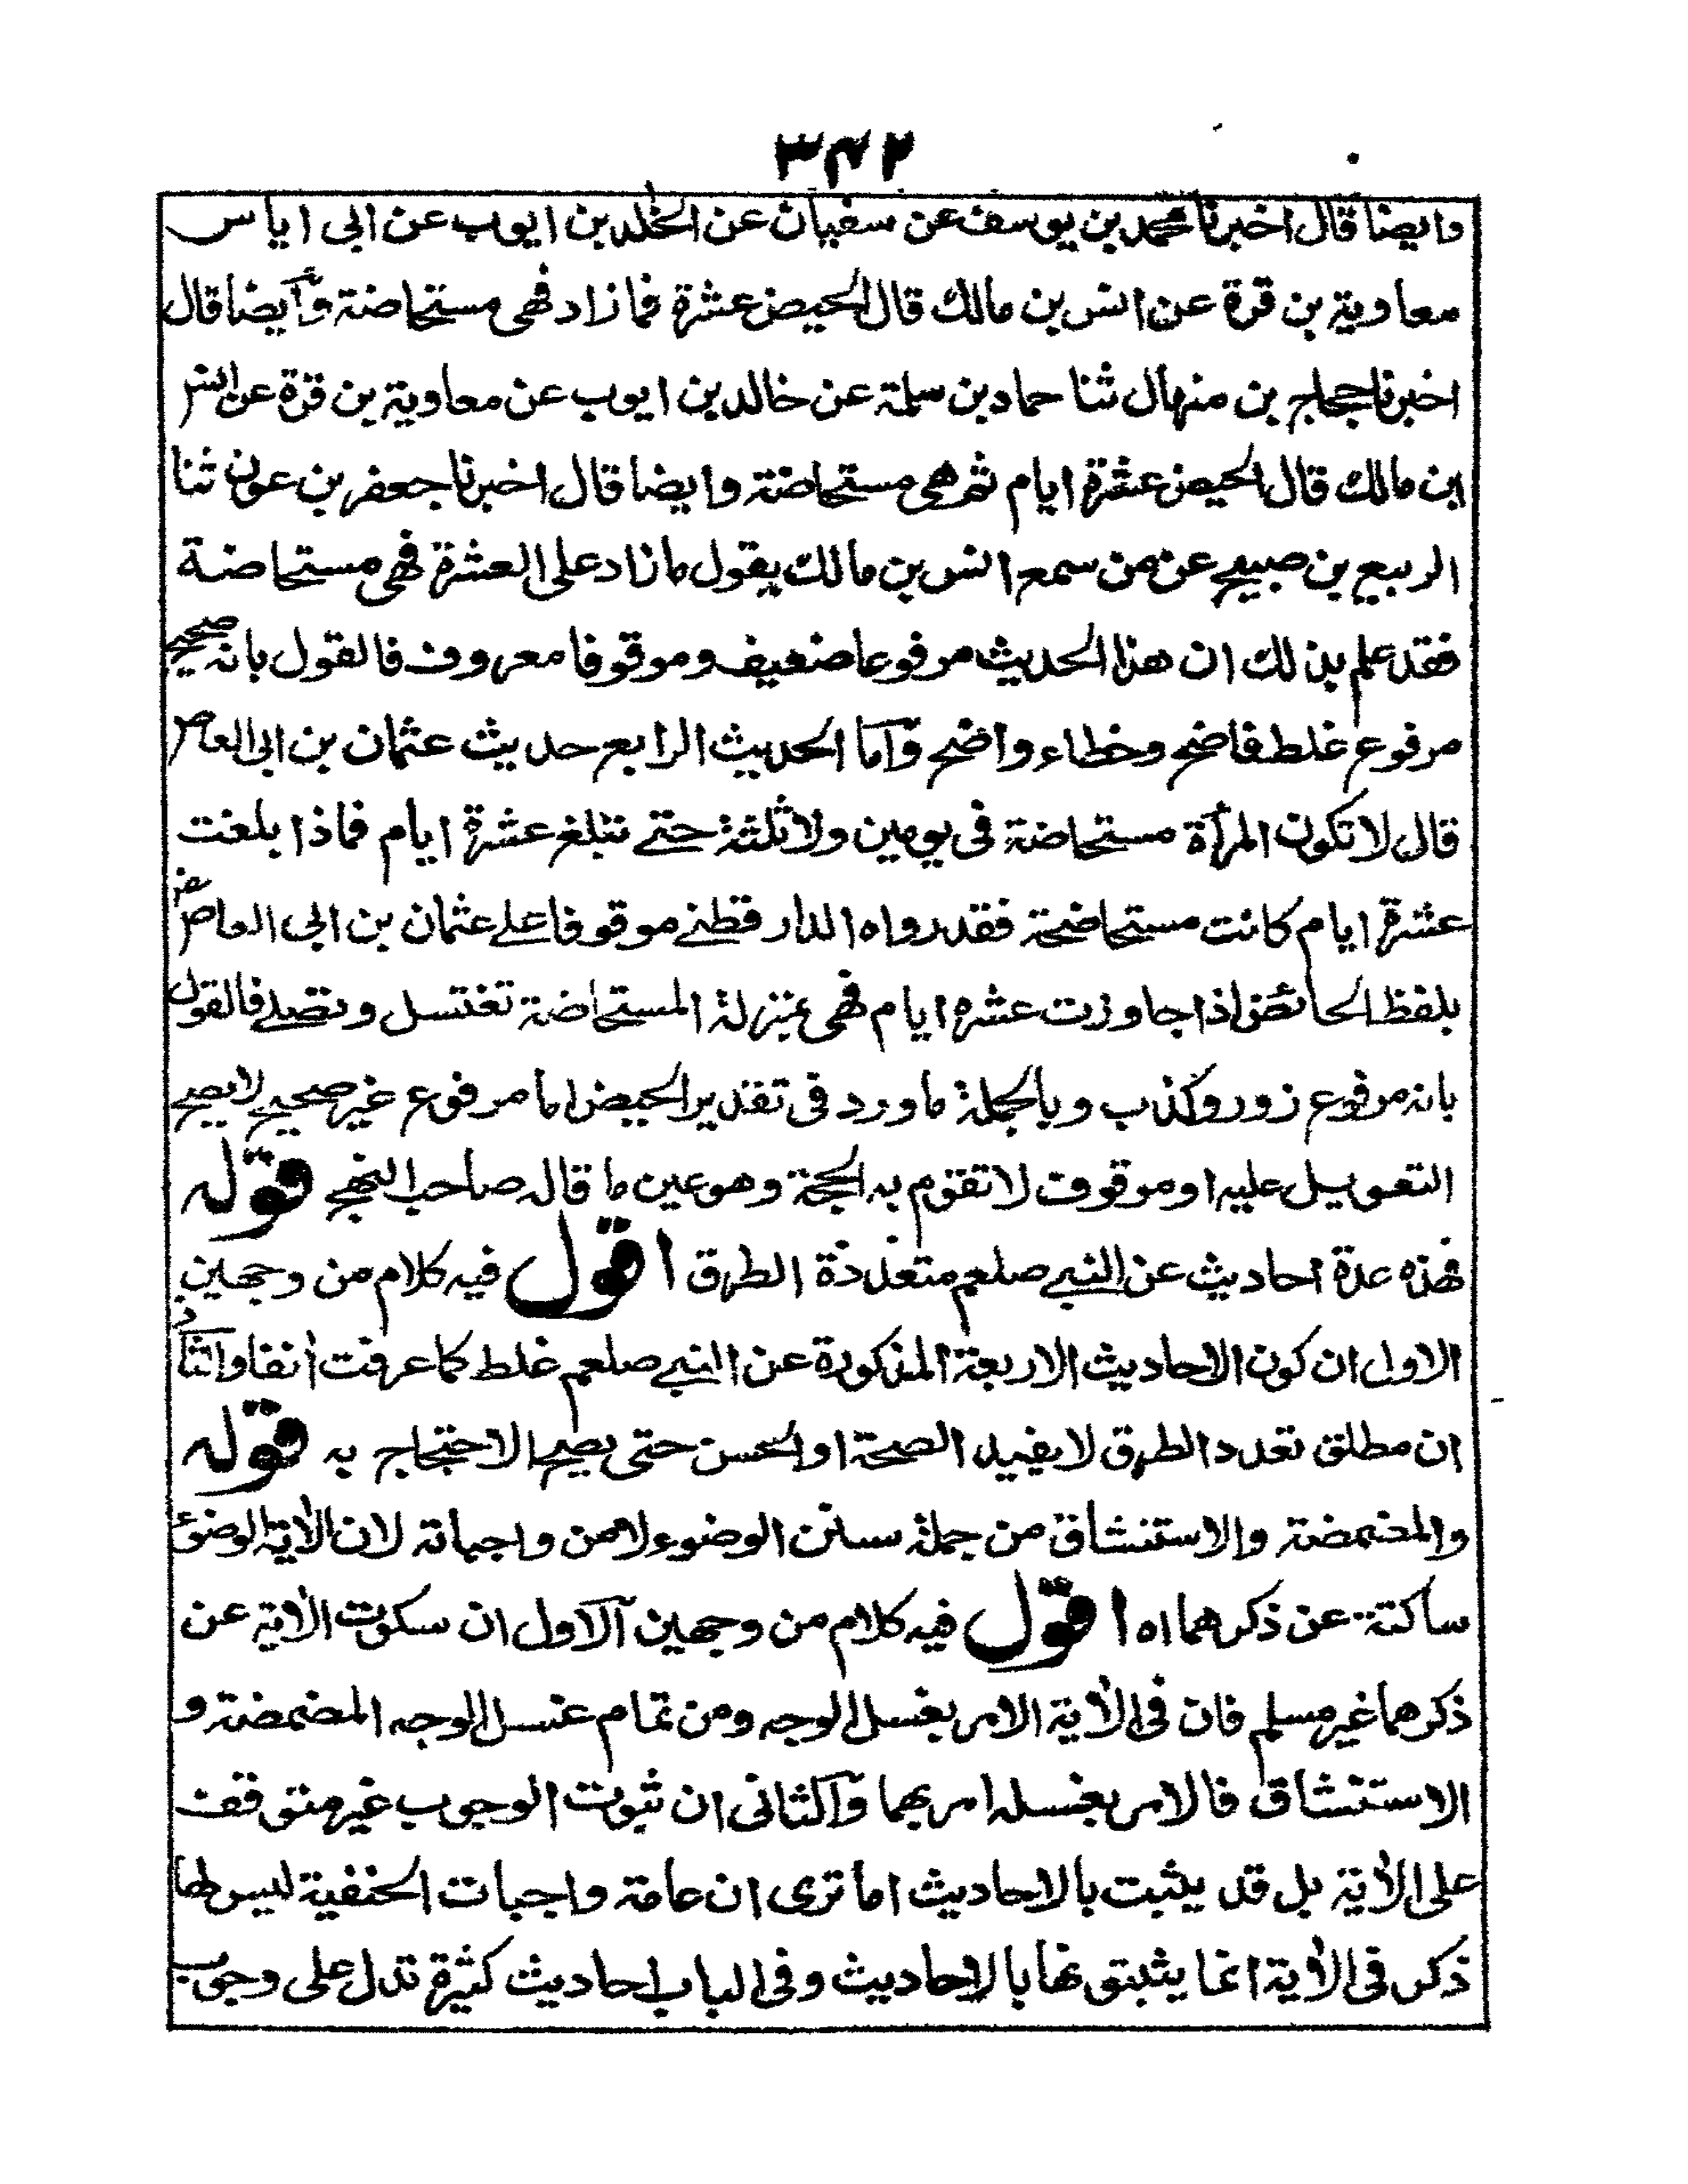 ۳۴۲
وايضا قال اخبرنا محمد بن يوسف عن سفيان عن الخلد بن ايوب عن ابى اياس
معاوية بن قرة عن انس بن مالك قال الحيض عشرة فما زاد فهى مستحاضة وايضا قال
اخبرنا حجاج بن منهال ثنا حماد بن سلمة عن خالد بن ايوب عن معاوية بن قرة عن انس
ابن مالك قال الحيض عشرة ايام ثم هى مستحاضة وايضا قال اخبرنا جعفر بن عون ثنا
الربيع بن صبيح عن من سمع انس بن مالك يقول ما زاد على العشرة فهى مستحاضة
فقد علم بذلك ان هذا الحديث مرفوعا ضعيف وموقوفا معروف فالقول بانه صحيح
مرفوع غلط فاضح وخطاء واضح واما الحديث الرابع حديث عثمان بن ابى العاص
قال لا تكون المرأة مستحاضة فى يومين ولا ثلثة حتے تبلغ عشرة ايام فاذا بلغت
عشرة ايام كانت مستحاضة فقد رواه الدارقطنے موقوفا علے عثمان بن ابى العاص رض
بلفظ الحائض اذا جاوزت عشره ايام فهى بمنزلة المستحاضة تغتسل وتصلے فالقول
بانه مرفوع زور وكذب وبالجملة ما ورد فى تقدير الحيض اما مرفوع غير صحيح لا يصح
التعويل عليه او موقوف لا تقوم به الحجة وهو عين ما قاله صاحب النهج قوله
فهذه عدة احاديث عن النبے صلعم متعددة الطرق اقول فيه كلام من وجهين
الاول ان كون الاحاديث الاربعة المذكورة عن النبے صلعم غلط كما عرفت انفا والثانى
ان مطلق تعدد الطرق لا يفيد الصحة او الحسن حتى يصح الاحتجاج به قوله
والمضمضة والاستنشاق من جملة سنن الوضوء لا من واجباته لان الاية الوضوء
ساكتة عن ذكرهما اه اقول فيه كلام من وجهين الاول ان سكوت الاية عن
ذكرهما غير مسلم فان فى الاية الامر بغسل الوجه ومن تمام غسل الوجه المضمضة و
الاستنشاق فالامر بغسله امر بهما والثانى ان ثبوت الوجوب غير متوقف
على الاية بل قد يثبت بالاحاديث اما ترى ان عامة واجبات الحنفية ليس لها
ذكر فى الاية انما يثبتونها بالاحاديث وفى الباب احاديث كثيرة تدل على وجوب